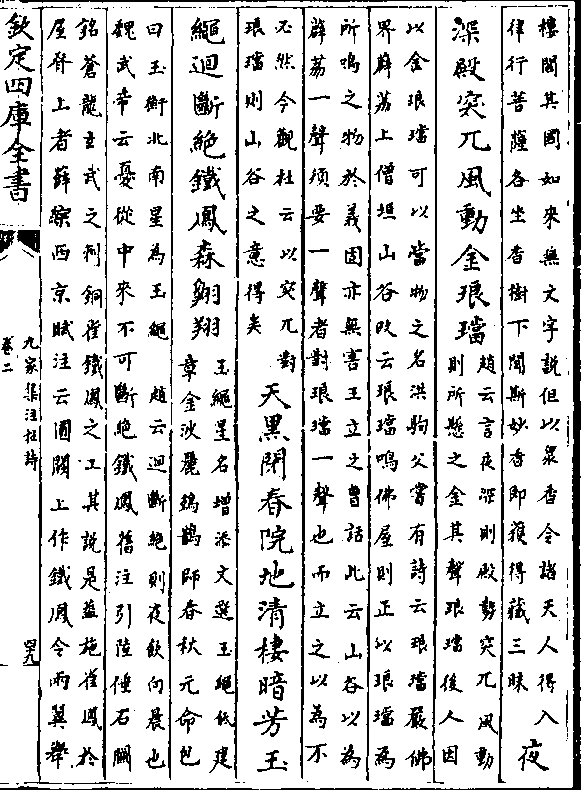 樓閣其國如來無文字說但以衆香令諸天人得入
律行菩薩各坐香樹下聞斯妙香即獲得藏三昧
夜
深殿突兀風動金琅璫
趙云言夜深則殿勢突兀風動
則所懸之金其聲琅璫後人因
以金琅璫可以當物之名洪駒父嘗有詩云琅璫嚴佛
界薜荔上僧垣山谷改云琅璫鳴佛屋則正以琅璫為
所鳴之物於義固亦無害王立之曾話此云山谷以為
薜荔一聲須要一聲者對琅璫一聲也而立之以為不
必然今觀杜云以突兀對
琅璫則山谷之意得矣
天黑閉春院地清棲暗芳玉
繩迴斷絶鐵鳳森翺翔
玉繩星名增添文選玉繩低建
章金波麗鳷鵲師春秋元命包
曰玉衡北南星為玉繩 趙云迴斷絶則夜欲向晨也
魏武帝云憂從中來不可斷絶鐵鳳舊注引陸倕石闕
銘蒼龍玄武之制銅雀鐵鳳之工其說是蓋施雀鳳於
屋脊上者薛綜西京賦注云圓闕上作鐵鳳令兩翼舉
欽定四庫全書
九家集注杜詩
卷二
四九